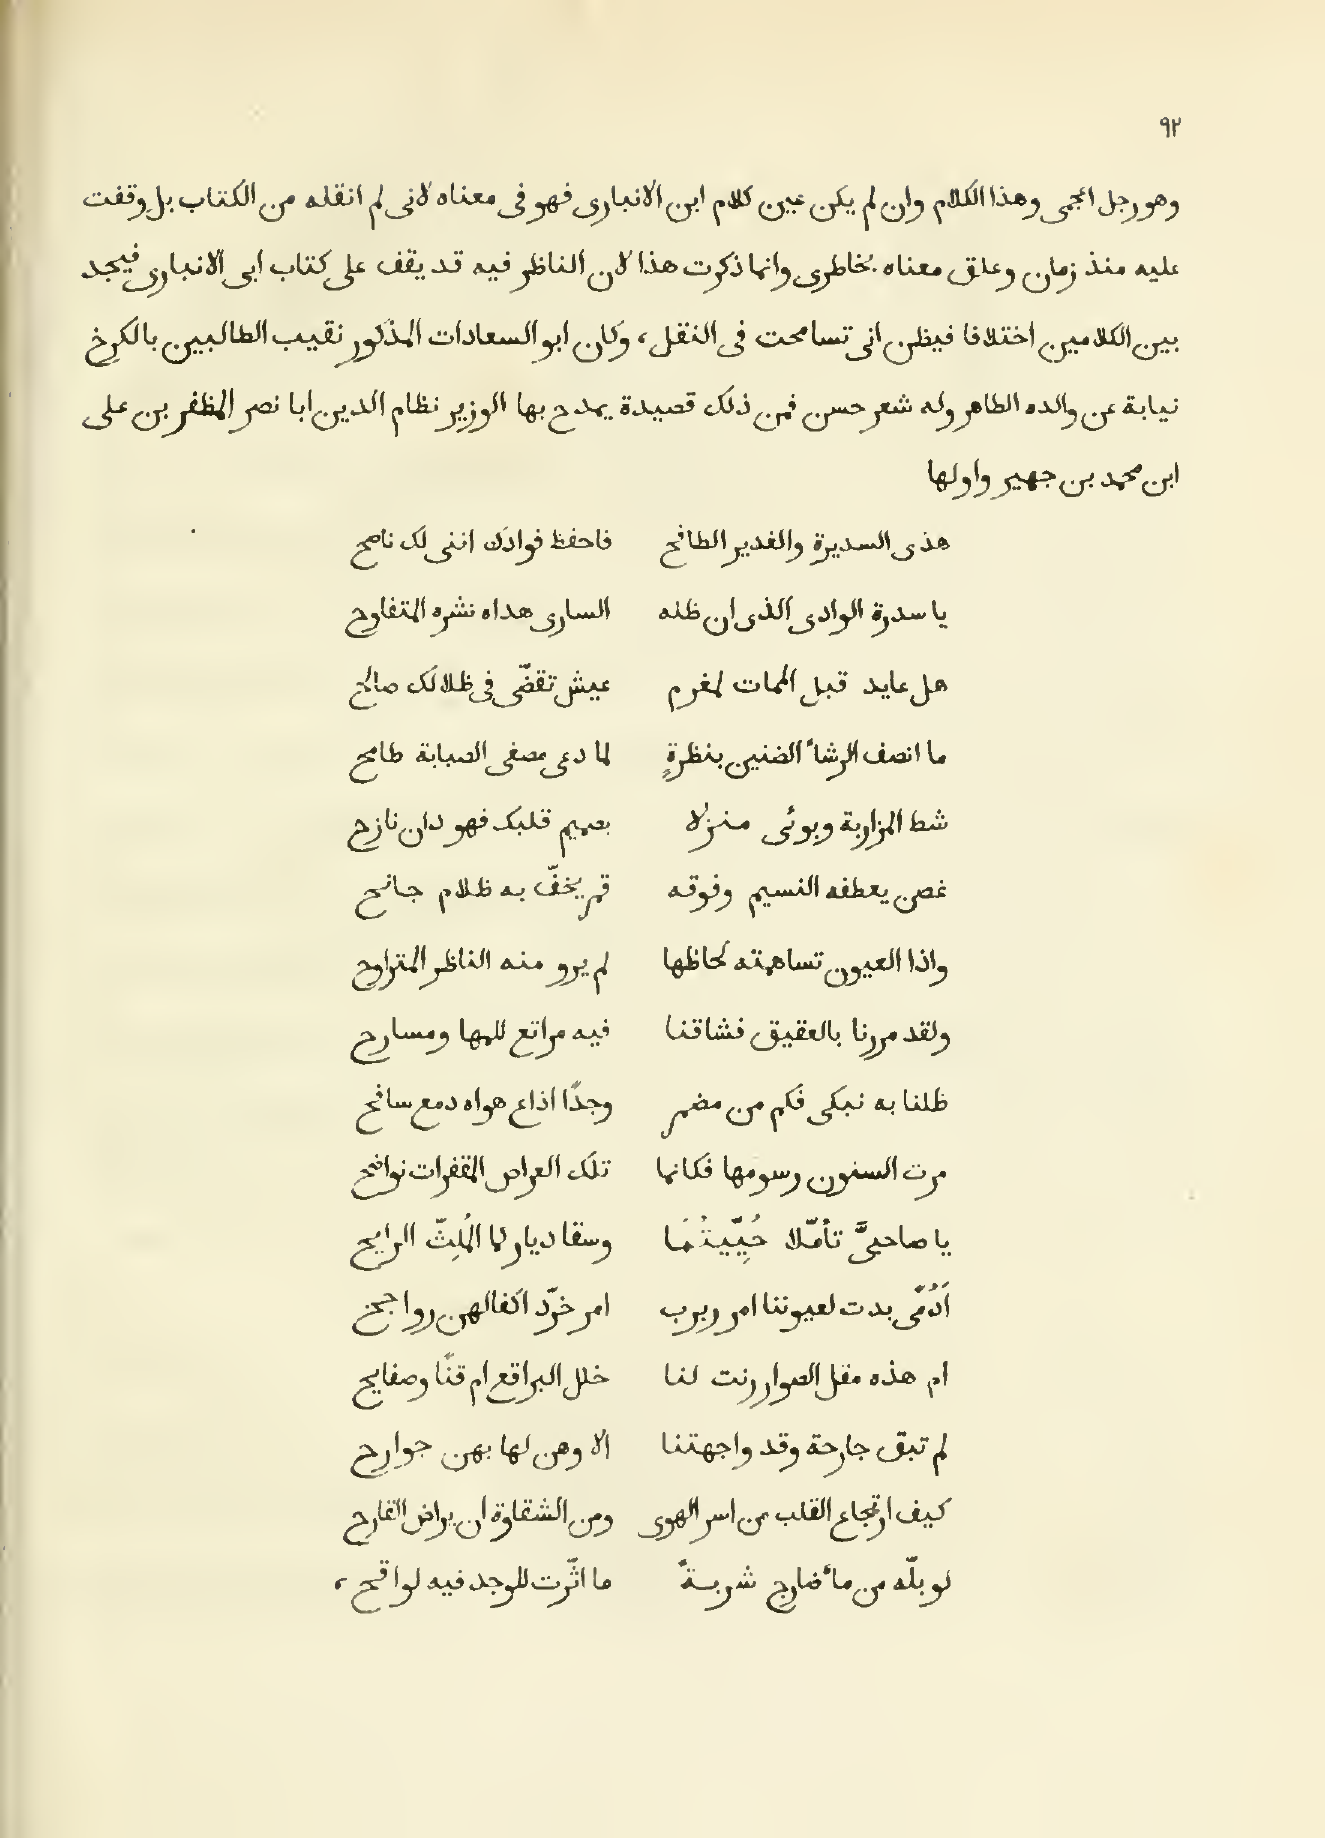 ٩٢
وهو رجل اعجمى وهذا الكلام وان لم يكن عين كلام ابن الانبارى فهو فى معناه لانى لم انقله من الكتاب بل وقفت
عليه منذ زمان وعلق معناه بخاطرى وانما ذكرت هذا لان الناظر فيه قد يقف على كتاب ابى الانبارى فيجد
بين الكلامين اختلافا فيظن انى تسامحت فى النقل، وكان ابو السعادات المذكور نقيب الطالبين بالكرخ
نيابة عن والده الطاهر وله شعر حسن فمن ذلك قصيدة يمدح بها الوزير نظام الدين ابا نصر المظفر بن على
ابن محمد بن جهير واولها
هذى السديرة والغدير الطافح فاحفظ فوادك اننى لك ناصح
يا سدرة الوادى الذى ان ظله السارى هداه نشره المتفاوح
هل عايد قبل الممات لمغرم عيش تقضّى فى ظلالك صالح
ما انصف الرشأ الضنين بنظرةٍ لما دعى مصغى الصبابة طامح
شط المزار به وبوئى منزلا بصميم قلبك فهو دان نازح
غصن يعطفه النسيم وفوقه قمر يخفّ به ظلام جانح
واذا العيون تساهمته لحاظها لم يرو منه الناظر المتراوح
ولقد مررنا بالعقيق فشاقنا فيه مراتع للمها ومسارح
ظلنا به نبكى فكم من مضمر وجدًا اذاع هواه دمع سافح
مرت السنون رسومها فكانما تلك العراص المقفرات نواضح
يا صاحبىَّ تأمّلا حُيِّيتُمَا وسقا دياركما المُلِثّ الرايح
اَدُمًى بدت لعيوننا امر ربرب امر خرّد اكفالهن رواجح
ام هذه مقل الصوار رنت لنا خلل البراقع ام قنًا وصفايح
لم تبق جارحة وقد واجهتنا الا وهن لها بهن جوارح
كيف ارتجاع القلب من اسر الهوى ومن الشقاوة ان يراض القارح
لو بلّه من مأ ضارج شربةً ما اثّرت للوجد فيه لواقح،